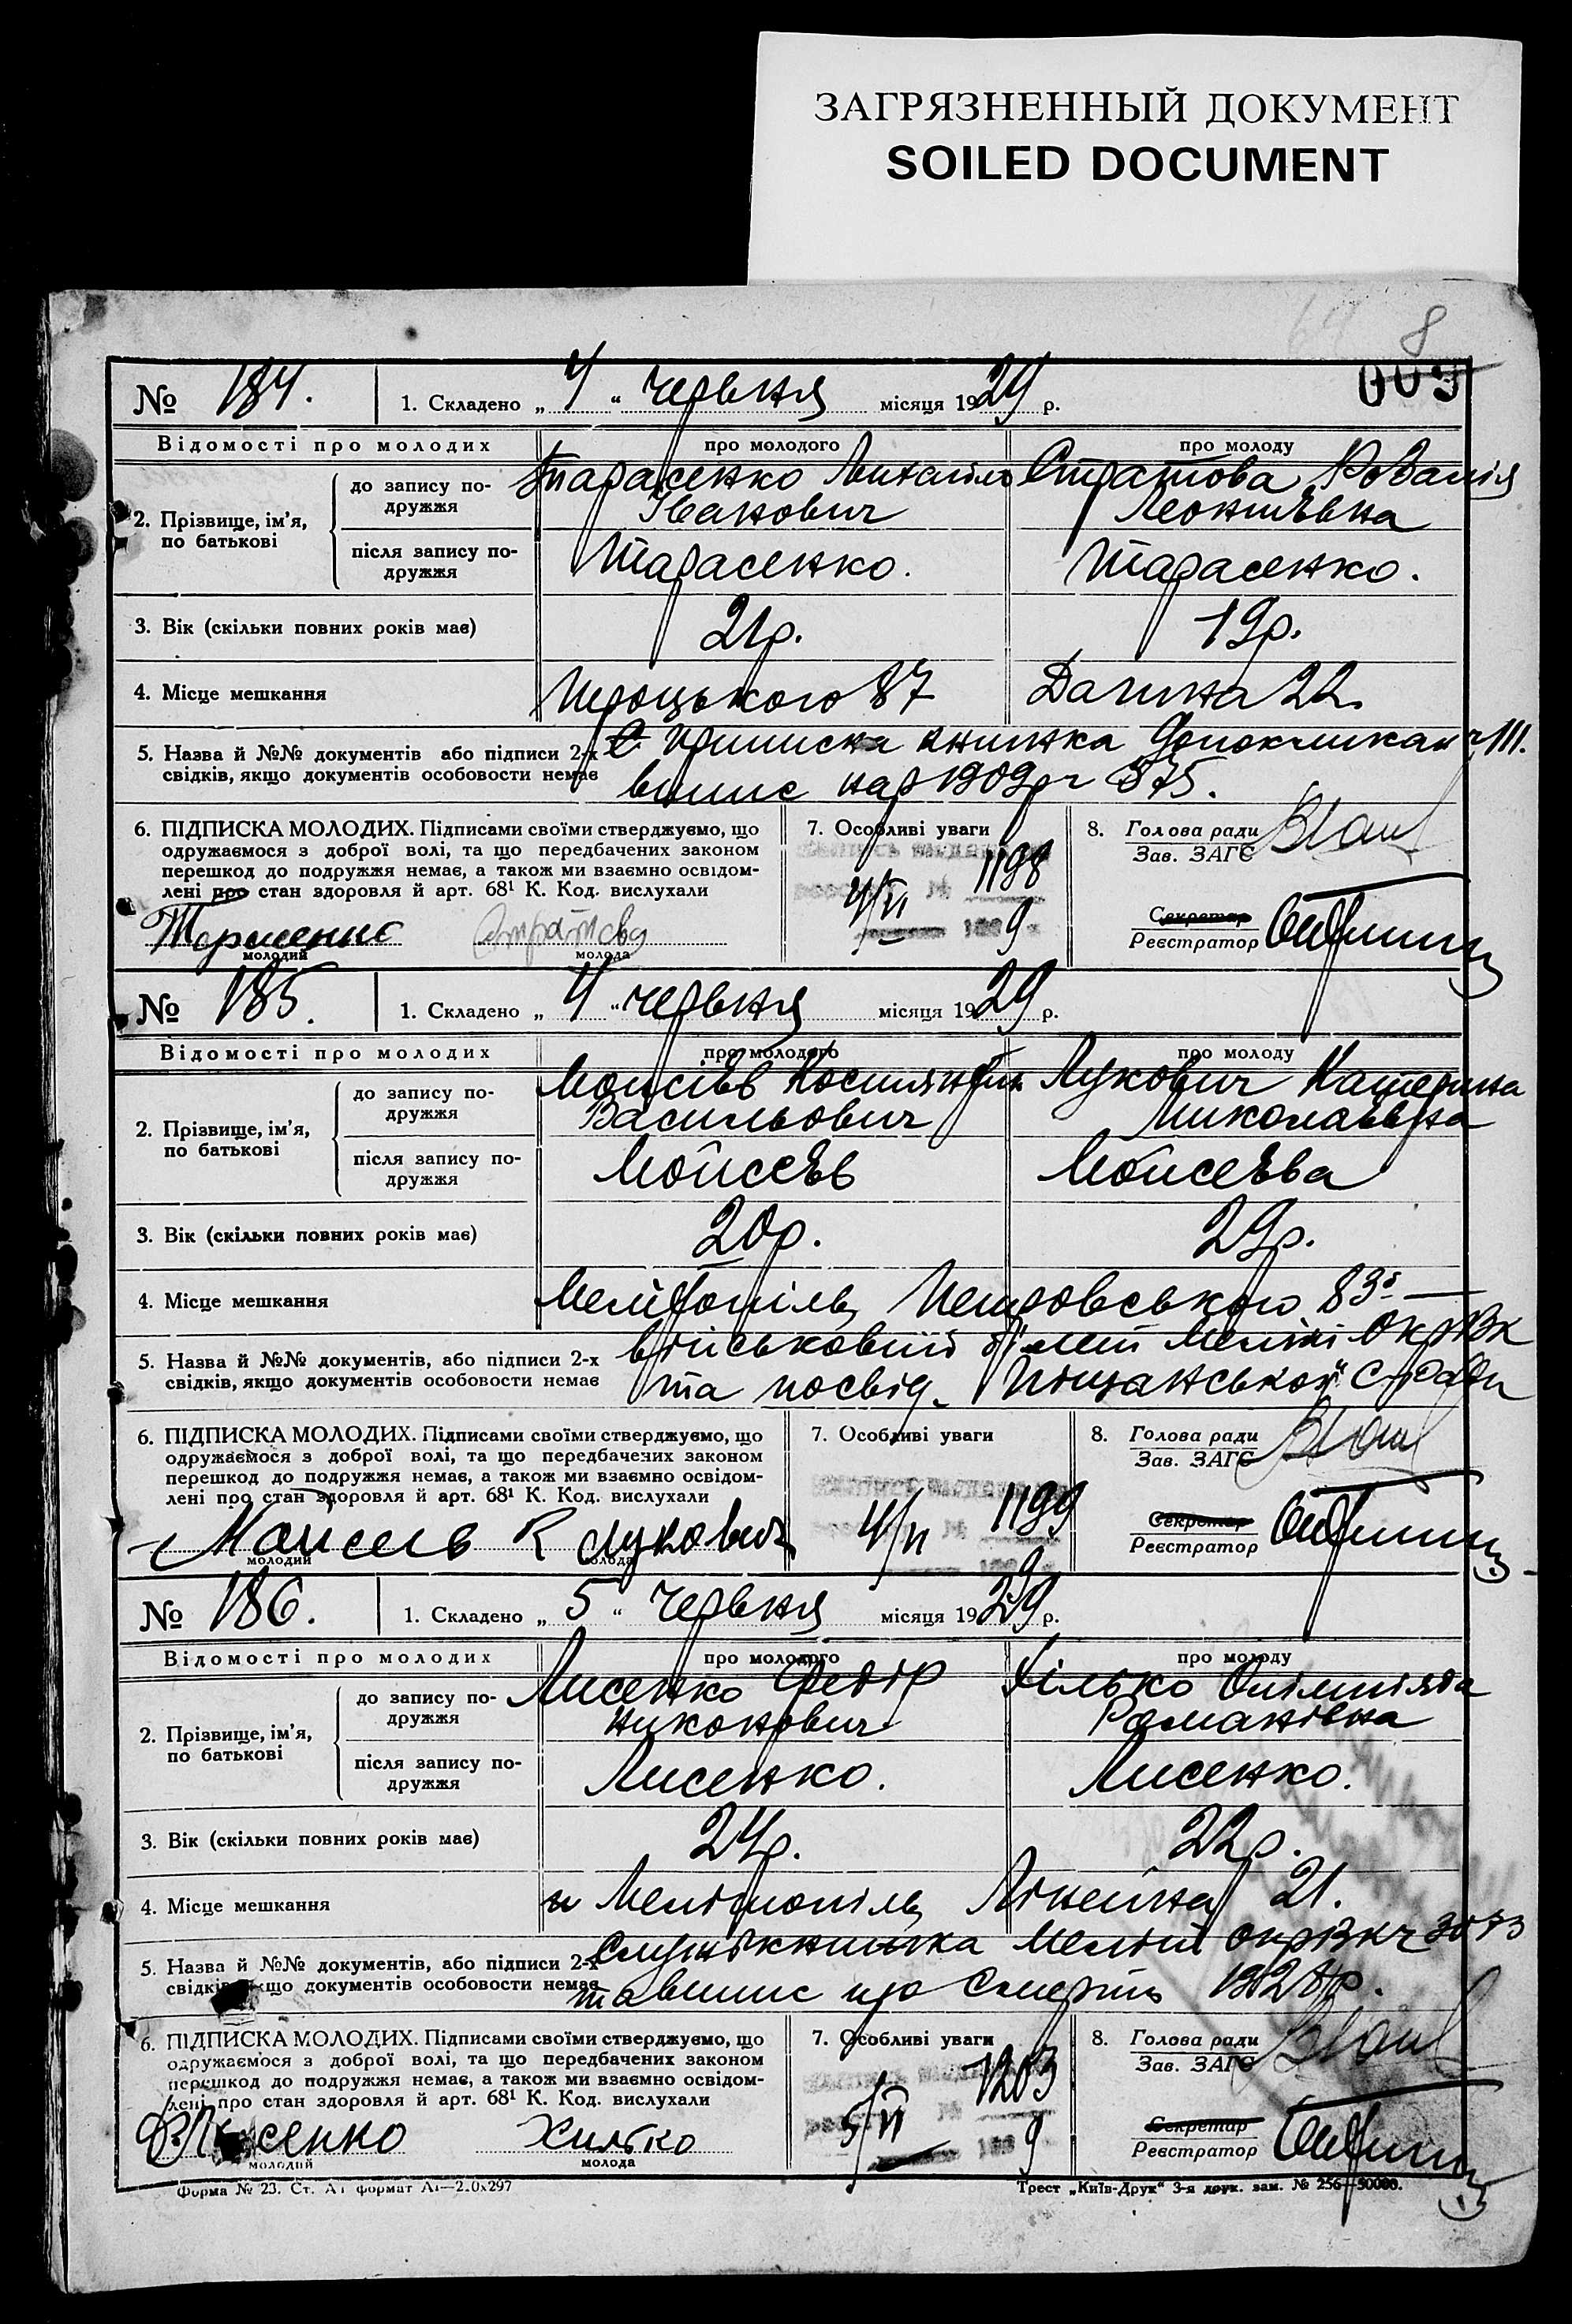 ЗАГРЯЗНЕННЫЙ ДОКУМЕНТ
SOILED DOCUMENT
8
003
№ 184. 1. Складено „ 4 “ червня місяця 1929 р.
Відомості про молодих про молодого про молоду
2. Прізвище, ім’я, по батькові
до запису по-дружжя Тарасенко Михайло Іванович Стратова
після запису по-дружжя Тарасенко. Тарасенко.
3. Вік (скільки повних років має) 21р. 19р.
4. Місце мешкання Троцького 87 22
5. Назва й №№ документів або підписи 2-х
свідків, якщо документів особовости немає
приписна книжка
випис 1909р ч 375.
6. ПІДПИСКА МОЛОДИХ. Підписами своїми стверджуємо, що
одружаємося з доброї волі, та що передбачених законом
перешкод до подружжя немає, а також ми взаємно освідом-
лені про стан здоровля й арт. 68¹ К. Код. вислухали
молодий молода
7. Особливі уваги
1198
4/VI
9
8. Голова ради
Зав. ЗАГС
Секретар
Реєстратор
№ 185. 1. Складено „ 4 “ червня місяця 1929 р.
Відомості про молодих про молодого про молоду
2. Прізвище, ім’я, по батькові
до запису по-дружжя Мойсеєв Костянтин Васильович Лукович Катерина Миколаєвна
після запису по-дружжя Мойсеєв Мойсеєва
3. Вік (скільки повних років має) 20р. 29р.
4. Місце мешкання Мелітопіль Петровського 83
5. Назва й №№ документів, або підписи 2-х
свідків, якщо документів особовости немає
військовий білет Меліт ОкрВК
та посвід. Піщанської с/ради
6. ПІДПИСКА МОЛОДИХ. Підписами своїми стверджуємо, що
одружаємося з доброї волі, та що передбачених законом
перешкод до подружжя немає, а також ми взаємно освідом-
лені про стан здоровля й арт. 68¹ К. Код. вислухали
Мойсеев К Лукович
молодий молода
7. Особливі уваги
1199
4/VI
9
8. Голова ради
Зав. ЗАГС
Секретар
Реєстратор
№ 186. 1. Складено „ 5 “ червня місяця 1929 р.
Відомості про молодих про молодого про молоду
2. Прізвище, ім’я, по батькові
до запису по-дружжя Лисенко Федір Никонович Хілько Олімпіяда Романівна
після запису по-дружжя Лисенко. Лисенко.
3. Вік (скільки повних років має) 24р. 22р.
4. Місце мешкання м Мелітопіль Лінейна 21.
5. Назва й №№ документів, або підписи 2-х
свідків, якщо документів особовости немає
книжка Меліт ОкрВК ч 3073
та випис про смерть
6. ПІДПИСКА МОЛОДИХ. Підписами своїми стверджуємо, що
одружаємося з доброї волі, та що передбачених законом
перешкод до подружжя немає, а також ми взаємно освідом-
лені про стан здоровля й арт. 68¹ К. Код. вислухали
Лисенко Хилько
молодий молода
7. Особливі уваги
1203
5/VI
9
8. Голова ради
Зав. ЗАГС
Секретар
Реєстратор
Форма № 23. Ст. А1 формат А1—210х297 Трест „Київ-Друк“ 3-я друк. зам. № 256—50000.